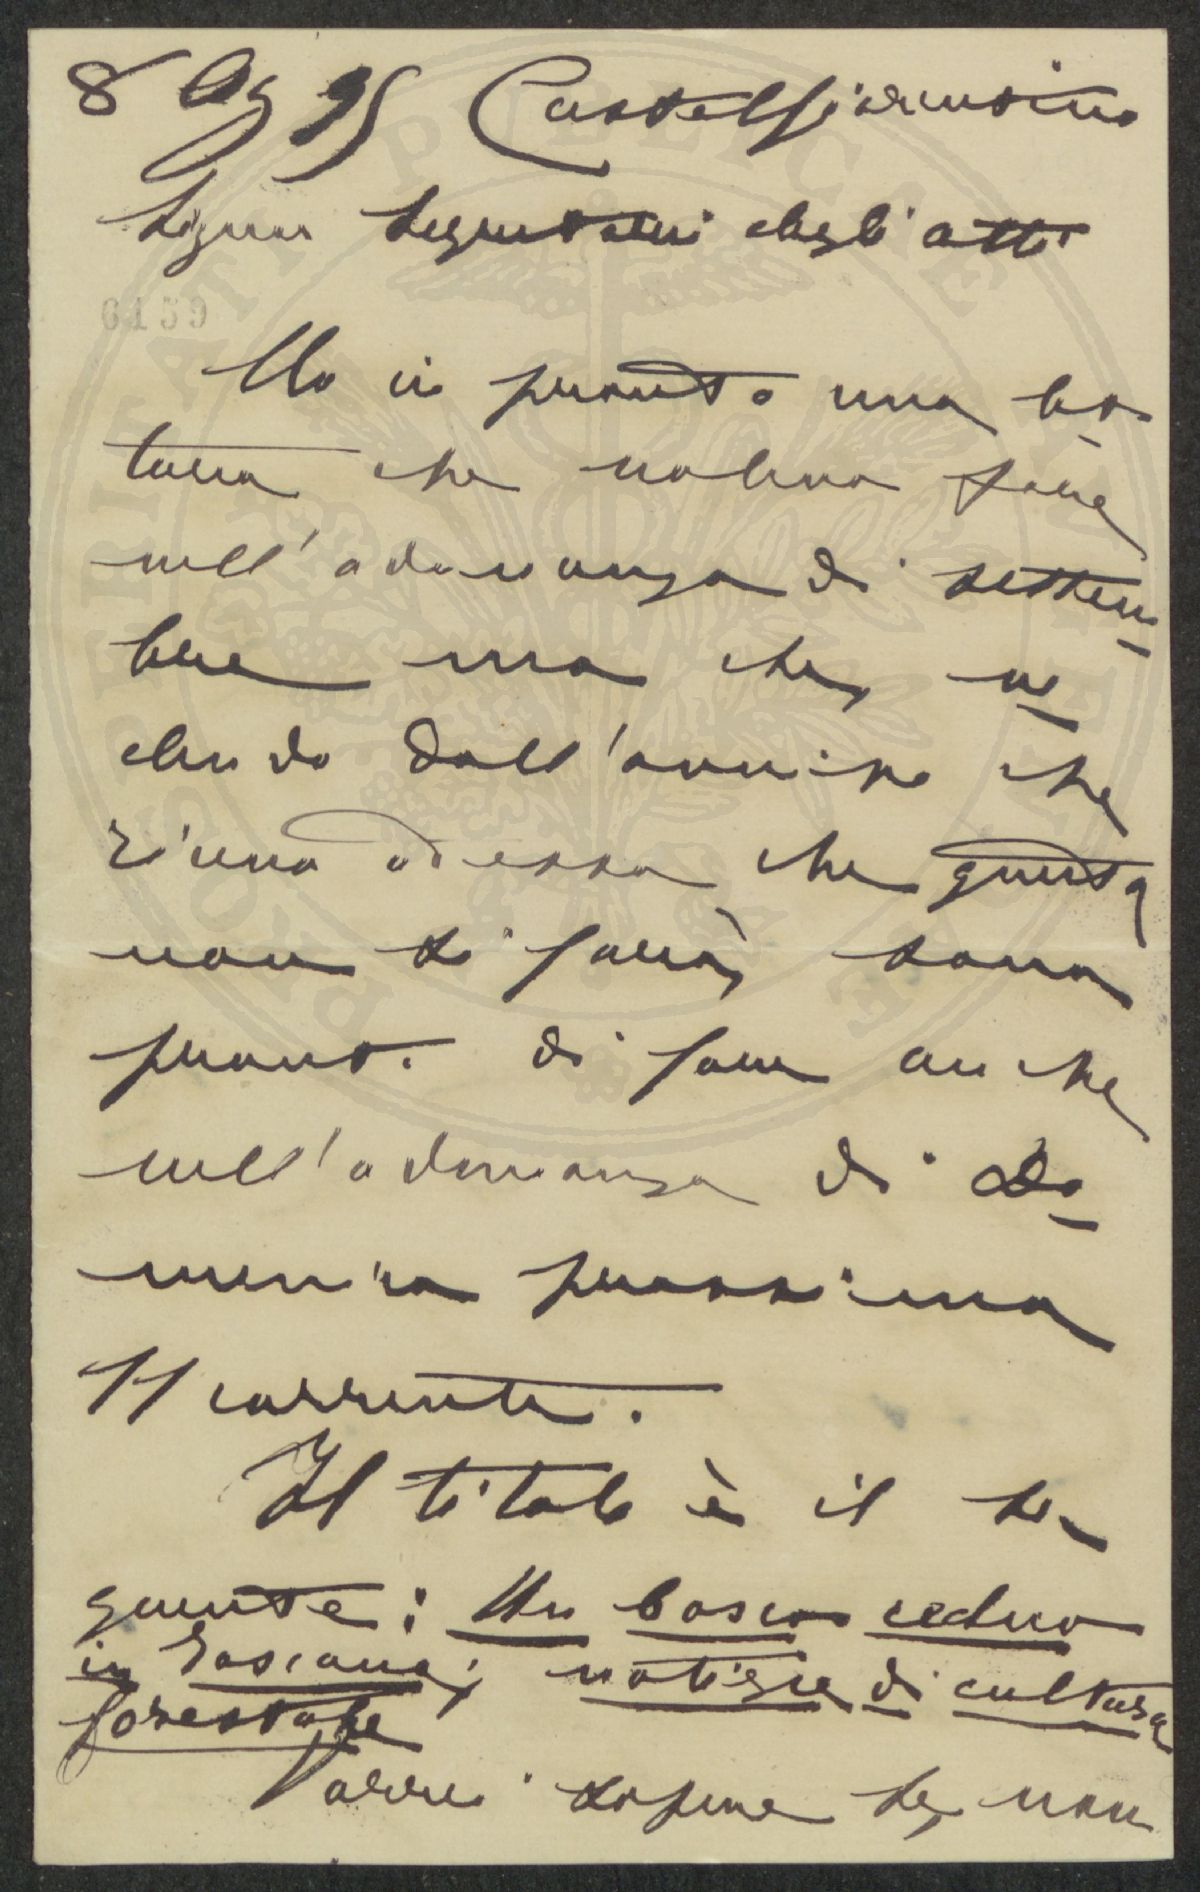 8 Ag 95 Castelfiorentino
Signor Segretario degli atti
6159
Ho in pronto una let-
tura che voleva fare
nell'adunanza di settem-
bre ma che, ve-
dendo dall'avviso che
ricevo adesso che questa
non si farà, sono
pronto di fare anche
nell'adunanza di Do-
menica prossima
11 corrente.
Il titolo è il se-
guente: Un bosco ceduo
in Toscana; notizie di cultura
forestale
Vorrei sapere se, non